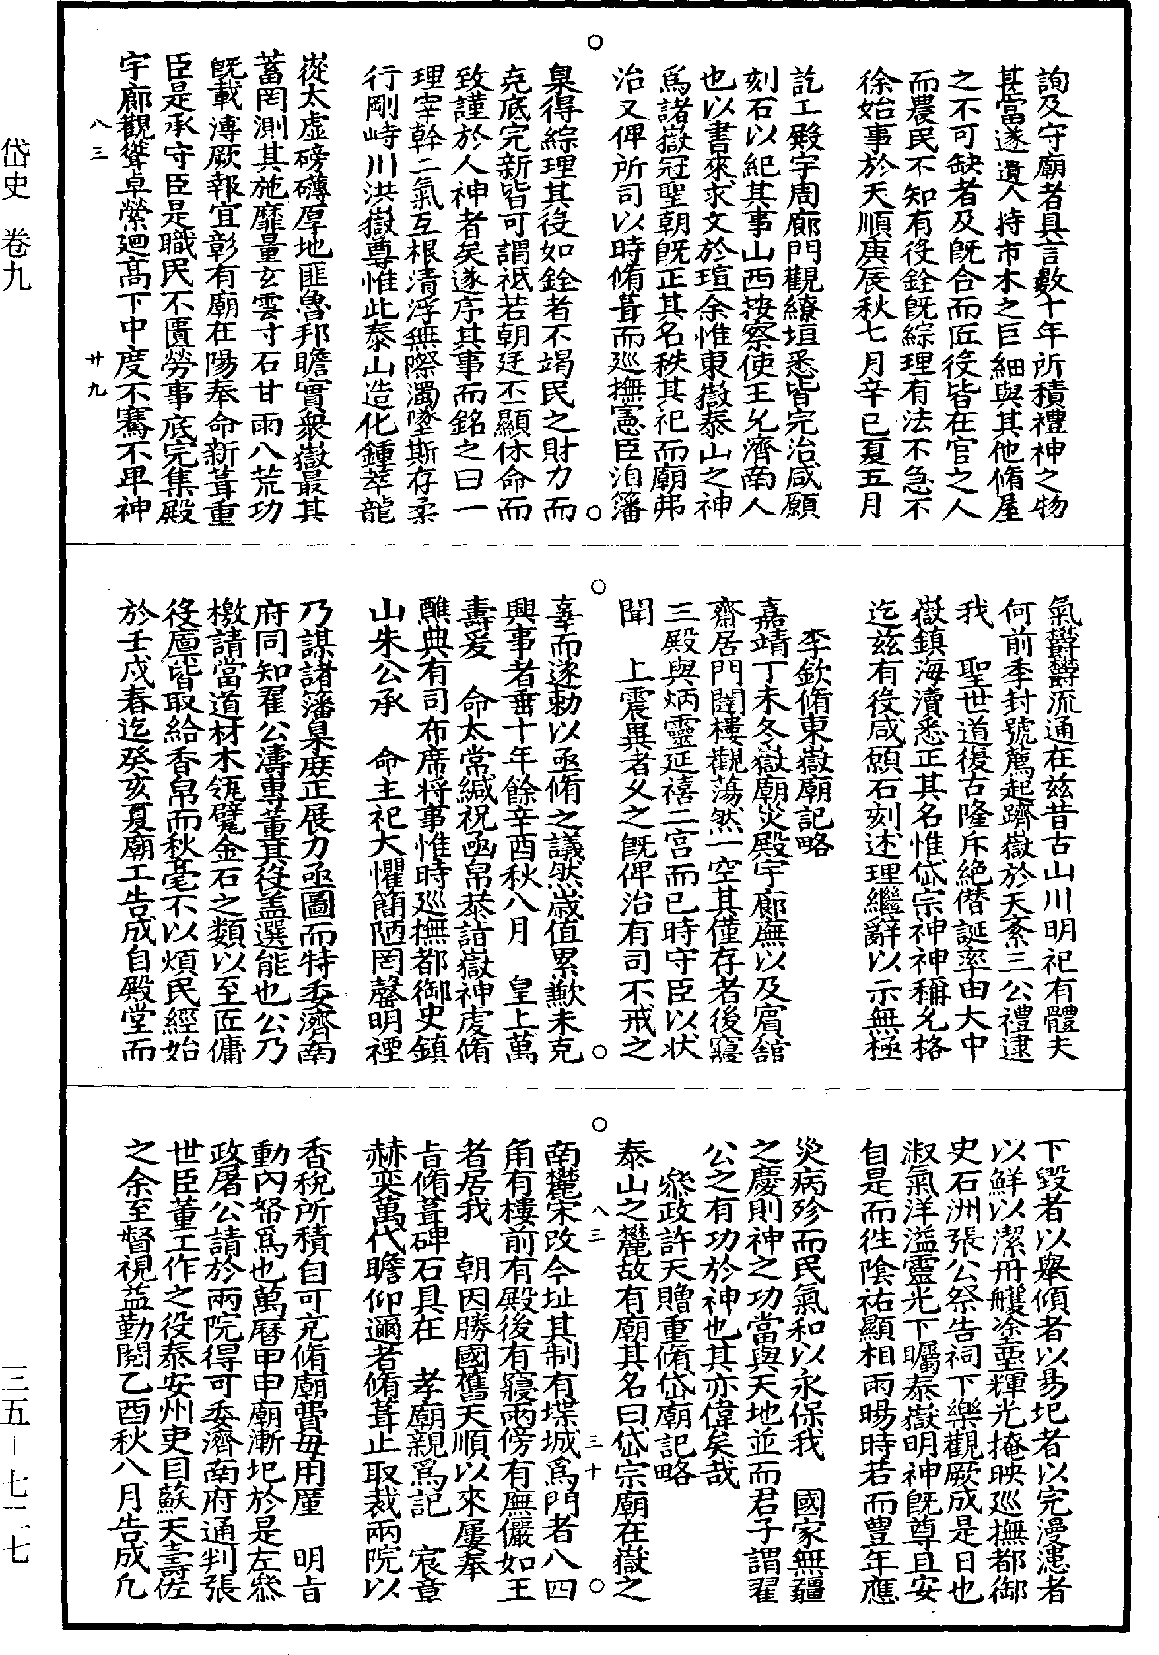 岱史 卷九
三五—七一七
詢及守廟者具言數十年所積禮神之物
甚富遂遣人持市木之巨細與其他脩屋
之不可缺者及既合而匠役皆在官之人
而農民不知有役銓既綜理有法不急不
徐始事於天順庚辰秋七月辛巳夏五月
訖工殿宇周廊門觀繚垣悉皆完治咸願
刻石以紀其事山西按察使王允濟南人
也以書來求文於瑄余惟東嶽泰山之神
爲諸嶽冠聖朝既正其名秩其祀而廟弗
治又俾所司以時脩葺而巡撫憲臣洎藩
臬得綜理其役如銓者不竭民之財力而
克底完新皆可謂祗若朝廷丕顯休命而
致謹於人神者矣遂序其事而銘之曰一
理宰幹二氣互根清浮無際濁墜斯存柔
行剛峙川洪嶽尊惟此泰山造化鍾萃龍
嵸太虛磅礴厚地匪魯邦瞻實衆嶽最其
蓄罔測其施靡量玄雲寸石甘雨八荒功
既載溥厥報宜彰有廟在陽奉命新葺重
臣是承守臣是職民不匱勞事底完集殿
宇廊觀聳卓縈廻高下中度不騫不卑神
八三
廿九
氣欝欝流通在兹昔古山川明祀有體夫
何前季封號薦起躋嶽於天紊三公禮逮
我 聖世道復古隆斥絶僣誕率由大中
嶽鎮海瀆悉正其名惟岱宗神神稱允格
迄兹有役咸願石刻述理繼辭以示無極
李欽脩東嶽廟記略
嘉靖丁未冬嶽廟災殿宇廊廡以及賓舘
齋居門闥樓觀蕩然一空其僅存者後寢
三殿與炳靈延禧二宫而已時守臣以狀
聞 上震異者乆之既俾治有司不戒之
辜而遂勅以亟脩之議然歲值累歉未克
興事者垂十年餘辛酉秋八月 皇上萬
壽爰 命太常緘祝函帛㳟詣嶽神虔脩
醮典有司布席將事惟時巡撫都御史鎮
山朱公承 命主祀大懼簡陋罔馨明禋
乃謀諸藩臬庭正展力亟圖而特委濟南
府同知翟公濤專董其役盖選能也公乃
檄請當道材木瓴甓金石之類以至匠傭
役廩皆取給香帛而秋毫不以煩民經始
於壬戌春迄癸亥夏廟工告成自殿堂而
下毁者以舉傾者以易圮者以完漫漶者
以鮮以潔丹艧塗堊輝光掩映巡撫都御
史石洲張公祭告祠下樂觀厥成是日也
淑氣洋溢靈光下矚泰嶽明神既尊且安
自是而徃陰祐顯相雨暘時若而豊年應
災病殄而民氣和以永保我 國家無疆
之慶則神之功當與天地並而君子謂翟
公之有功於神也其亦偉矣哉
叅政許天贈重脩岱廟記略
泰山之麓故有廟其名曰岱宗廟在嶽之
八三
三十
南麓宋改今址其制有堞城爲門者八四
角有樓前有殿後有寢兩傍有廡儼如王
者居我 朝因勝國舊天順以來屢奉
旨脩葺碑石具在 孝廟親爲記 宸章
赫奕萬代瞻仰邇者脩葺止取裁兩院以
香稅所積自可充脩廟費毋用厪 明旨
動内帑爲也萬曆甲申廟漸圮於是左叅
政屠公請於兩院得可委濟南府通判張
世臣董工作之役泰安州吏目蘇天壽佐
之余至督視益勤閱乙酉秋八月告成凢